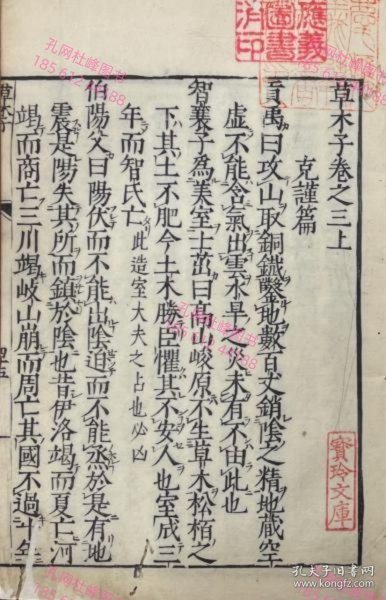 草木子卷之三上
克謹篇
貢禹曰攻山取銅鐵鑿地數百丈銷陰之精地蔵空
虛不能含氣出雲水旱之災未有不由此也
智襄子為美室士茁曰高山峻原不生草木松栢之
下其土不肥今土木勝臣懼其不安人也室成三
年而智氏亡此造室大夫之占也必凶
伯陽父曰陽伏而不能出陰迫而不能烝於是有地
震是陽失其所而鎮於陰也昔伊洛竭而夏亡河
竭而商亡三川竭岐山崩而周亡其國不過十年
應義
圖書
消印
寶玲文庫
孔网社峰图书
孔夫子旧书网